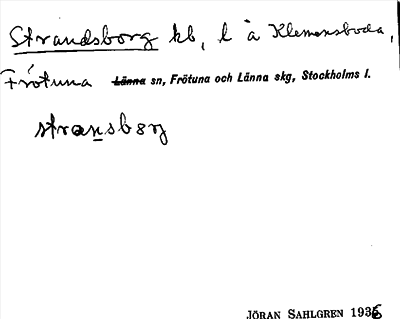 Strandsborg kb, l å Klemensboda,
Frötuna Länna sn, Frötuna och Länna skg, Stockholms l.
stransbǫrj
JÖRAN SAHLGREN 1936